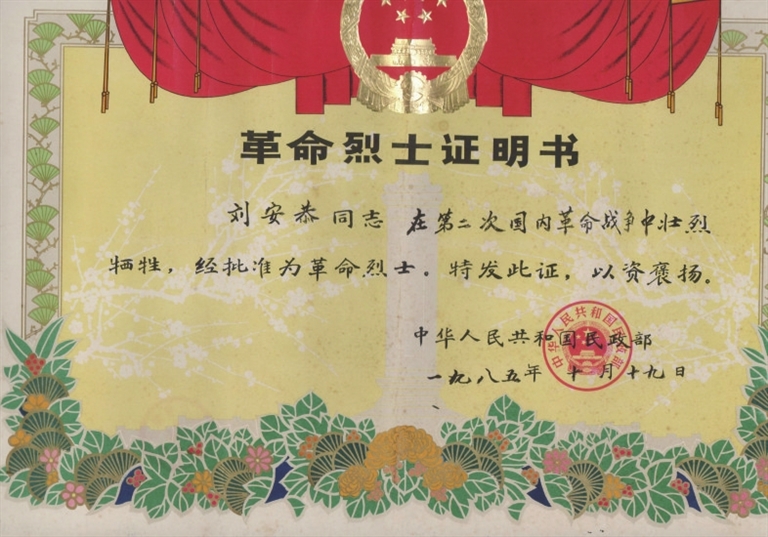 革命烈士证明书
刘安恭同志 在第二次国内革命战争中壮烈
牺牲，经批准为革命烈士。特发此证，以资褒扬。
中华人民共和国民政部
一九八五年 十 月十九日
中华人民共和国民政部